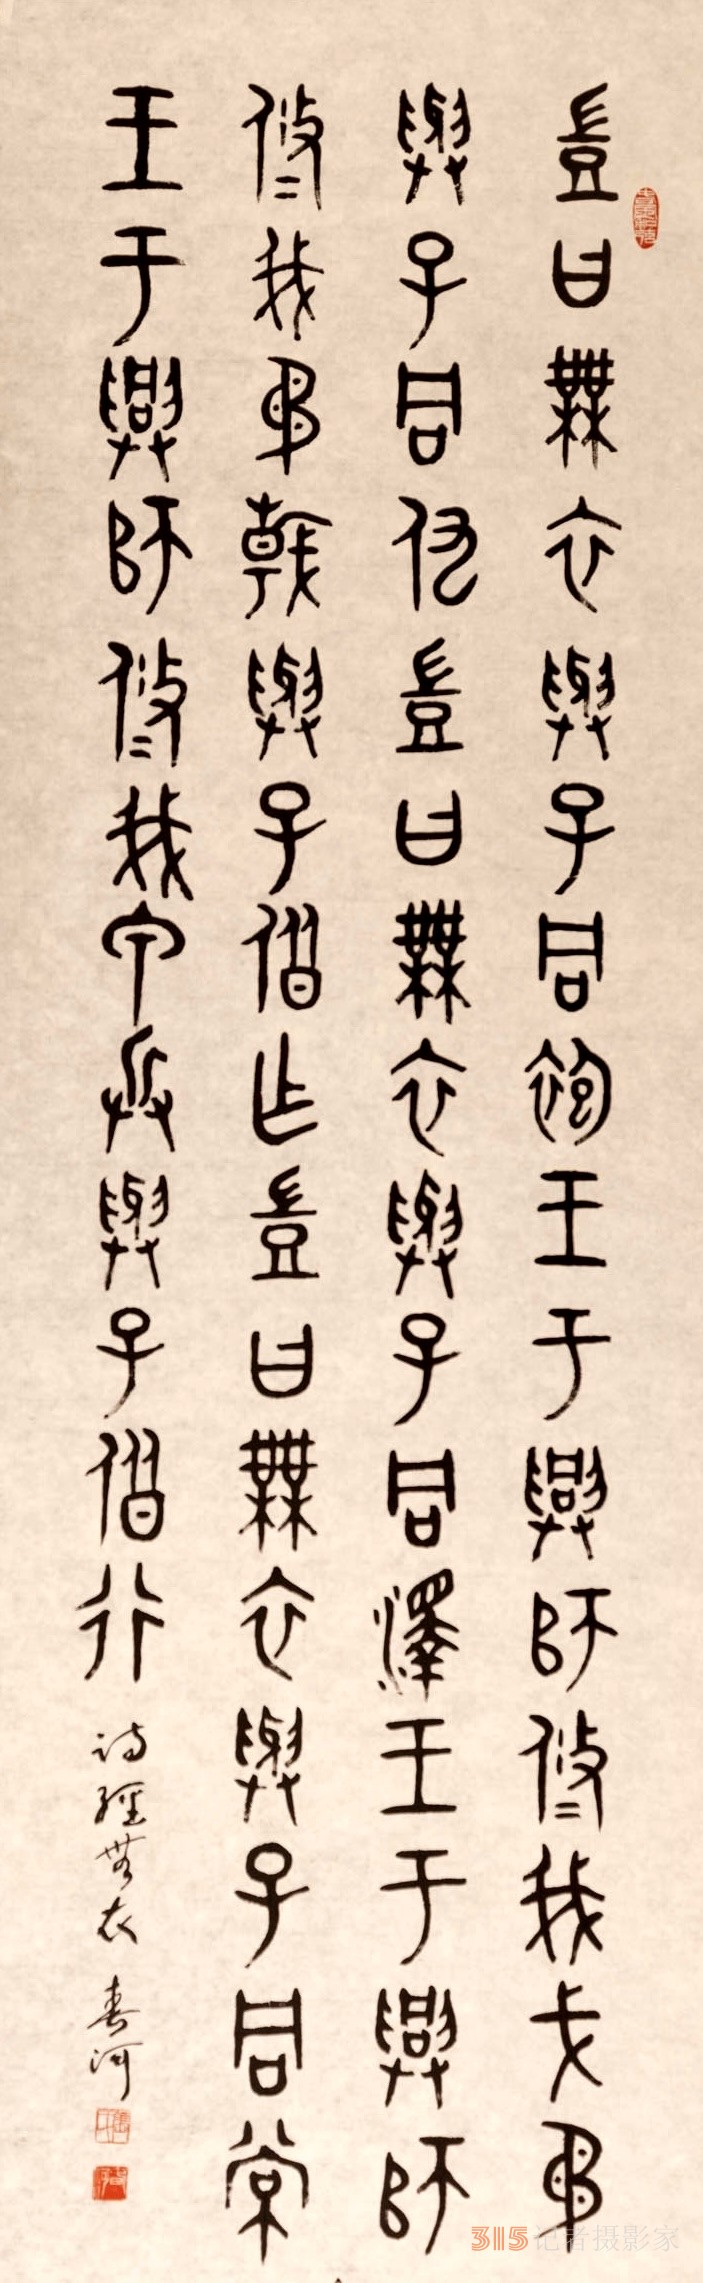 豈曰無衣與子同袍王于興師修我戈矛
與子同仇豈曰無衣與子同澤王于興師
修我矛戟與子偕作豈曰無衣與子同裳
王于興師修我甲兵與子偕行
詩經無衣 春河
315记者摄影家